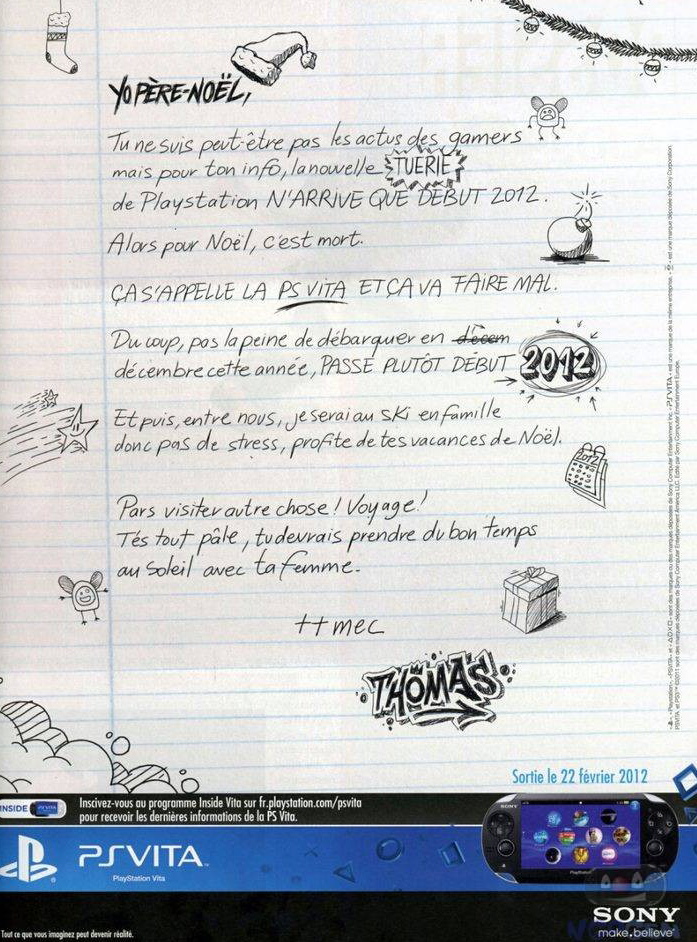 YO PÈRE-NOËL,
Tu ne suis peut-être pas les actus des gamers
mais pour ton info, la nouvelle TUERIE
de Playstation N'ARRIVE QUE DÉBUT 2012.
Alors pour Noël, c'est mort.
ÇA S'APPELLE LA PS VITA ET ÇA VA FAIRE MAL.
Du coup, pas la peine de débarquer en décem
décembre cette année, PASSE PLUTÔT DÉBUT 2012
Et puis, entre nous, je serai au ski en famille
donc pas de stress, profite de tes vacances de Noël.
2012
Pars visiter autre chose ! Voyage !
T'es tout pâle, tu devrais prendre du bon temps
au soleil avec ta femme.
++ mec
THOMAS
Sortie le 22 février 2012
INSIDE PSVITA
Inscrivez-vous au programme Inside Vita sur fr.playstation.com/psvita
pour recevoir les dernières informations de la PS Vita.
PSVITA
PlayStation Vita
SONY
SONY
make.believe
Tout ce que vous imaginez peut devenir réalité.